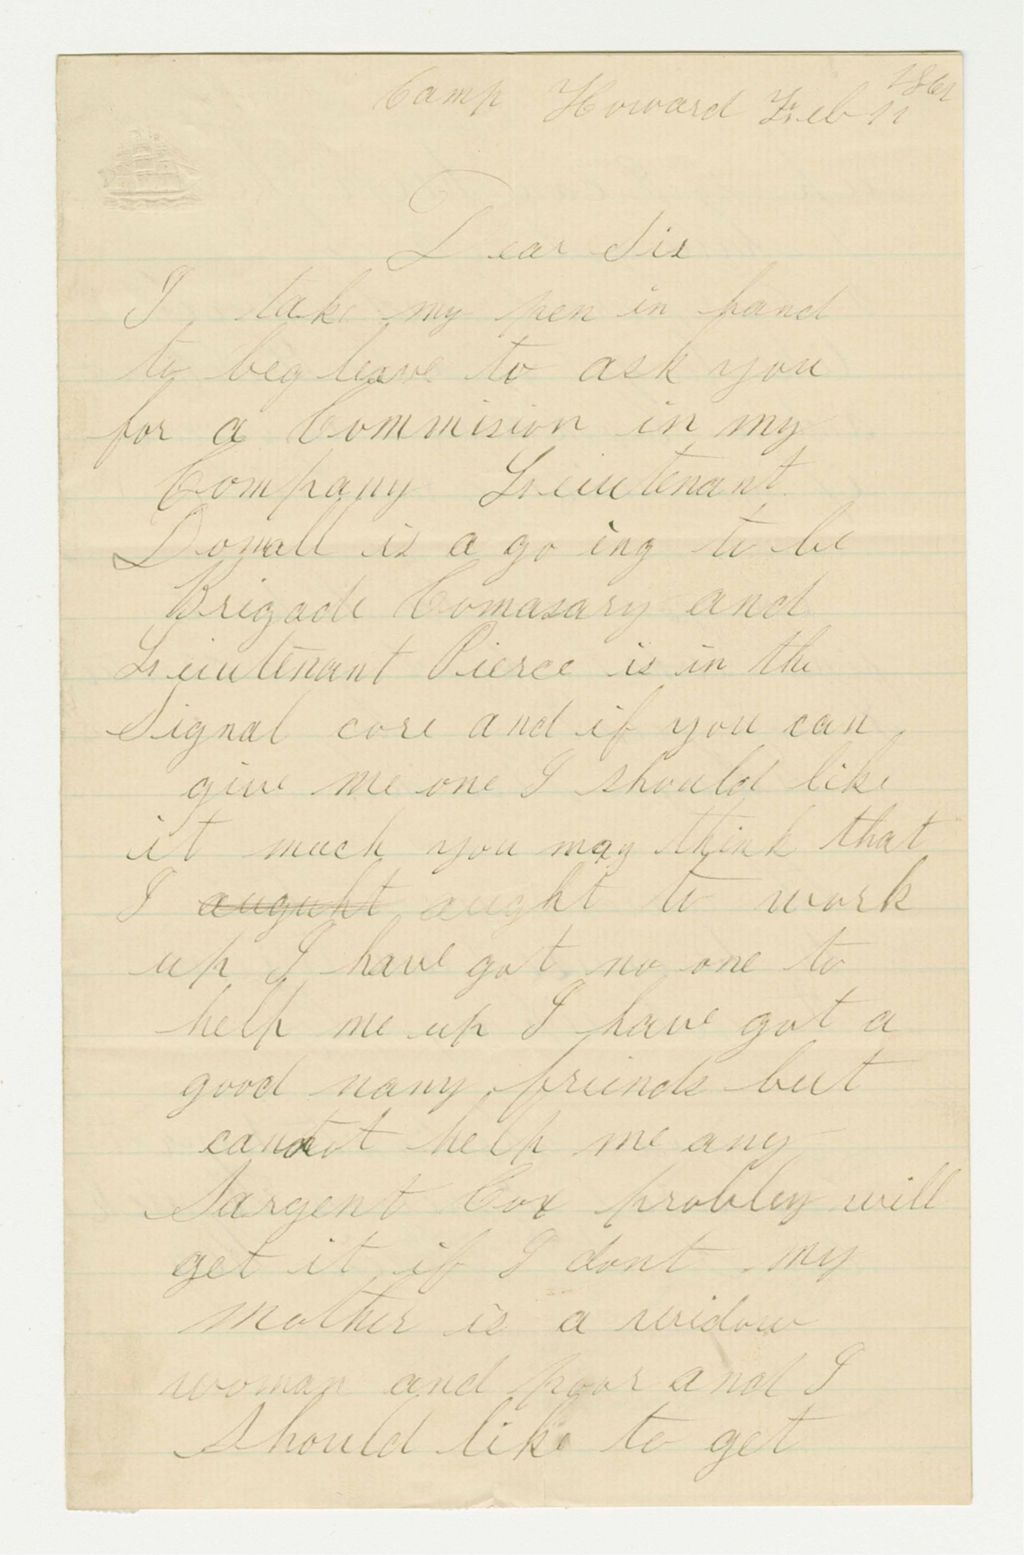 Camp Howard Feb 11 1861
Dear Sir
I take my pen in hand
to beg leave to ask you
for a Commision in my
Company Lieutenant
is a going to be
Brigade Comasary and
Lieutenant Pierce is in the
Signal core and if you can
give me one I should like
it much you may think that
I auguht aught to work
up I have got no one to
help me up I have got a
good nany friends but
cannot help me any
Sargent Cox probley will
get it if I dont my
mother is a widow
woman and poor and I
Should like to get